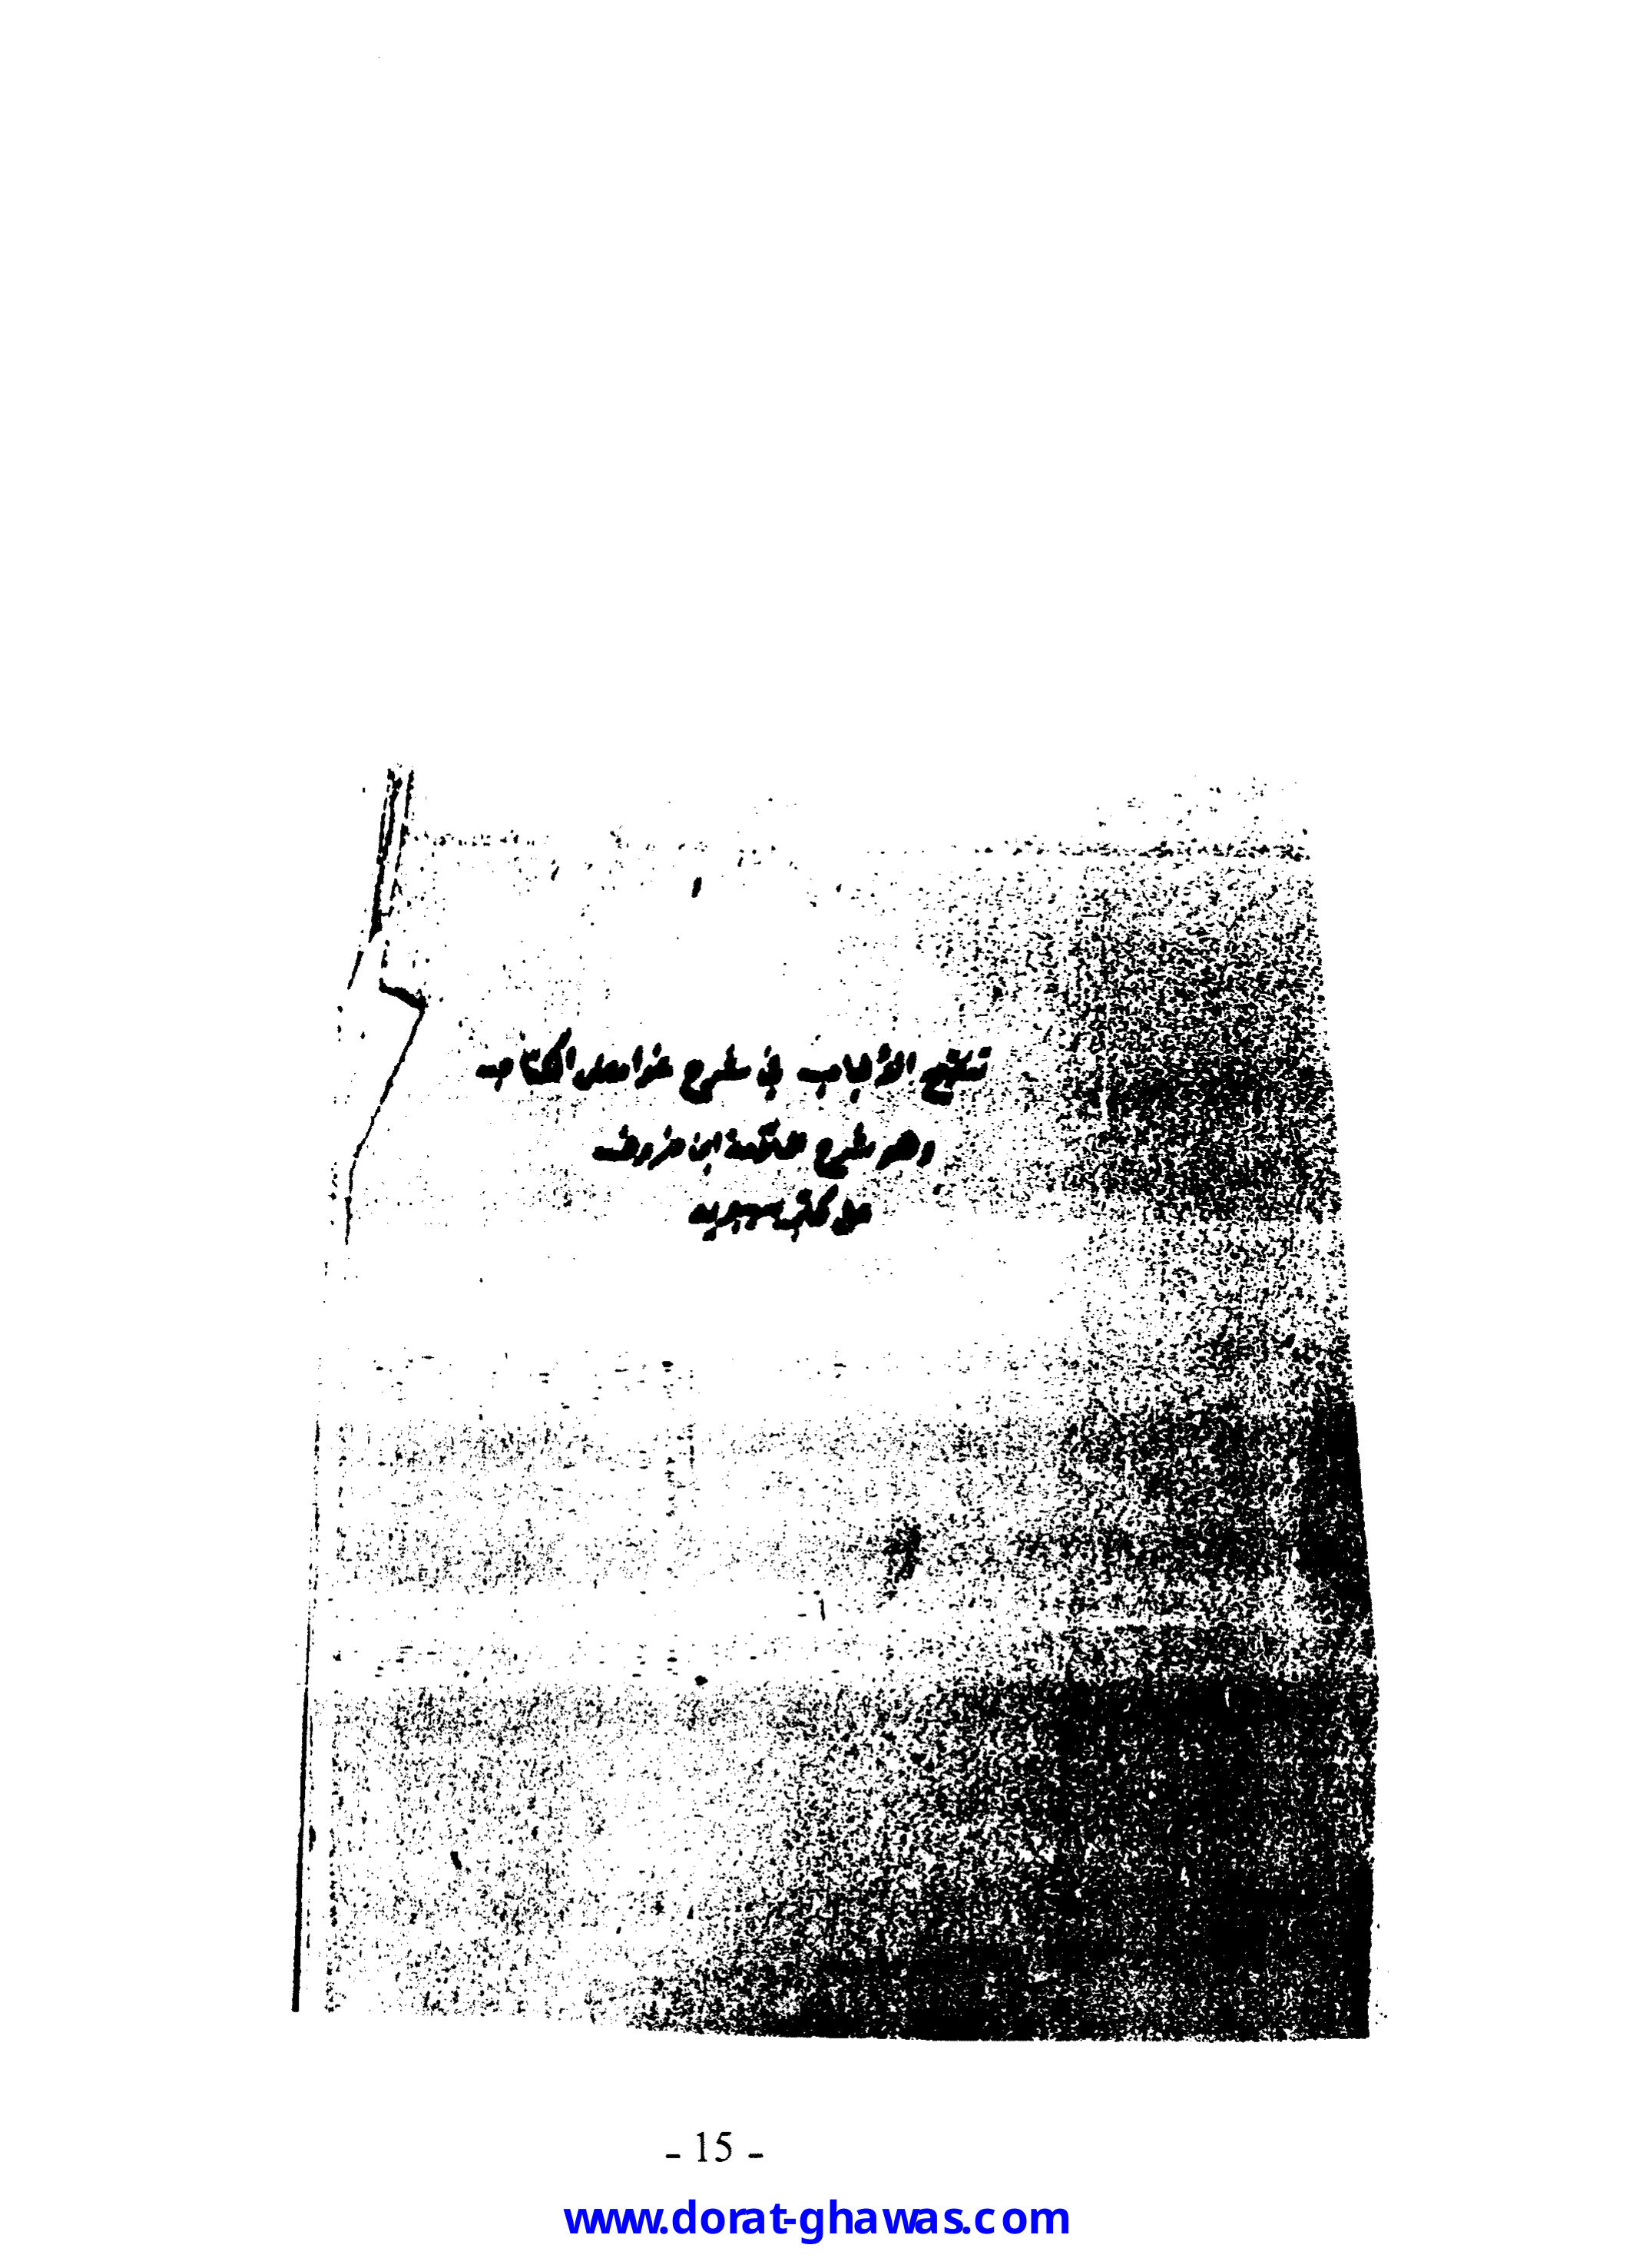 تنقيح الألباب في شرح غوامض الكتاب
وهو شرح العلامة ابن خروف
على كتاب سيبويه
- 15 -
www.dorat-ghawas.com